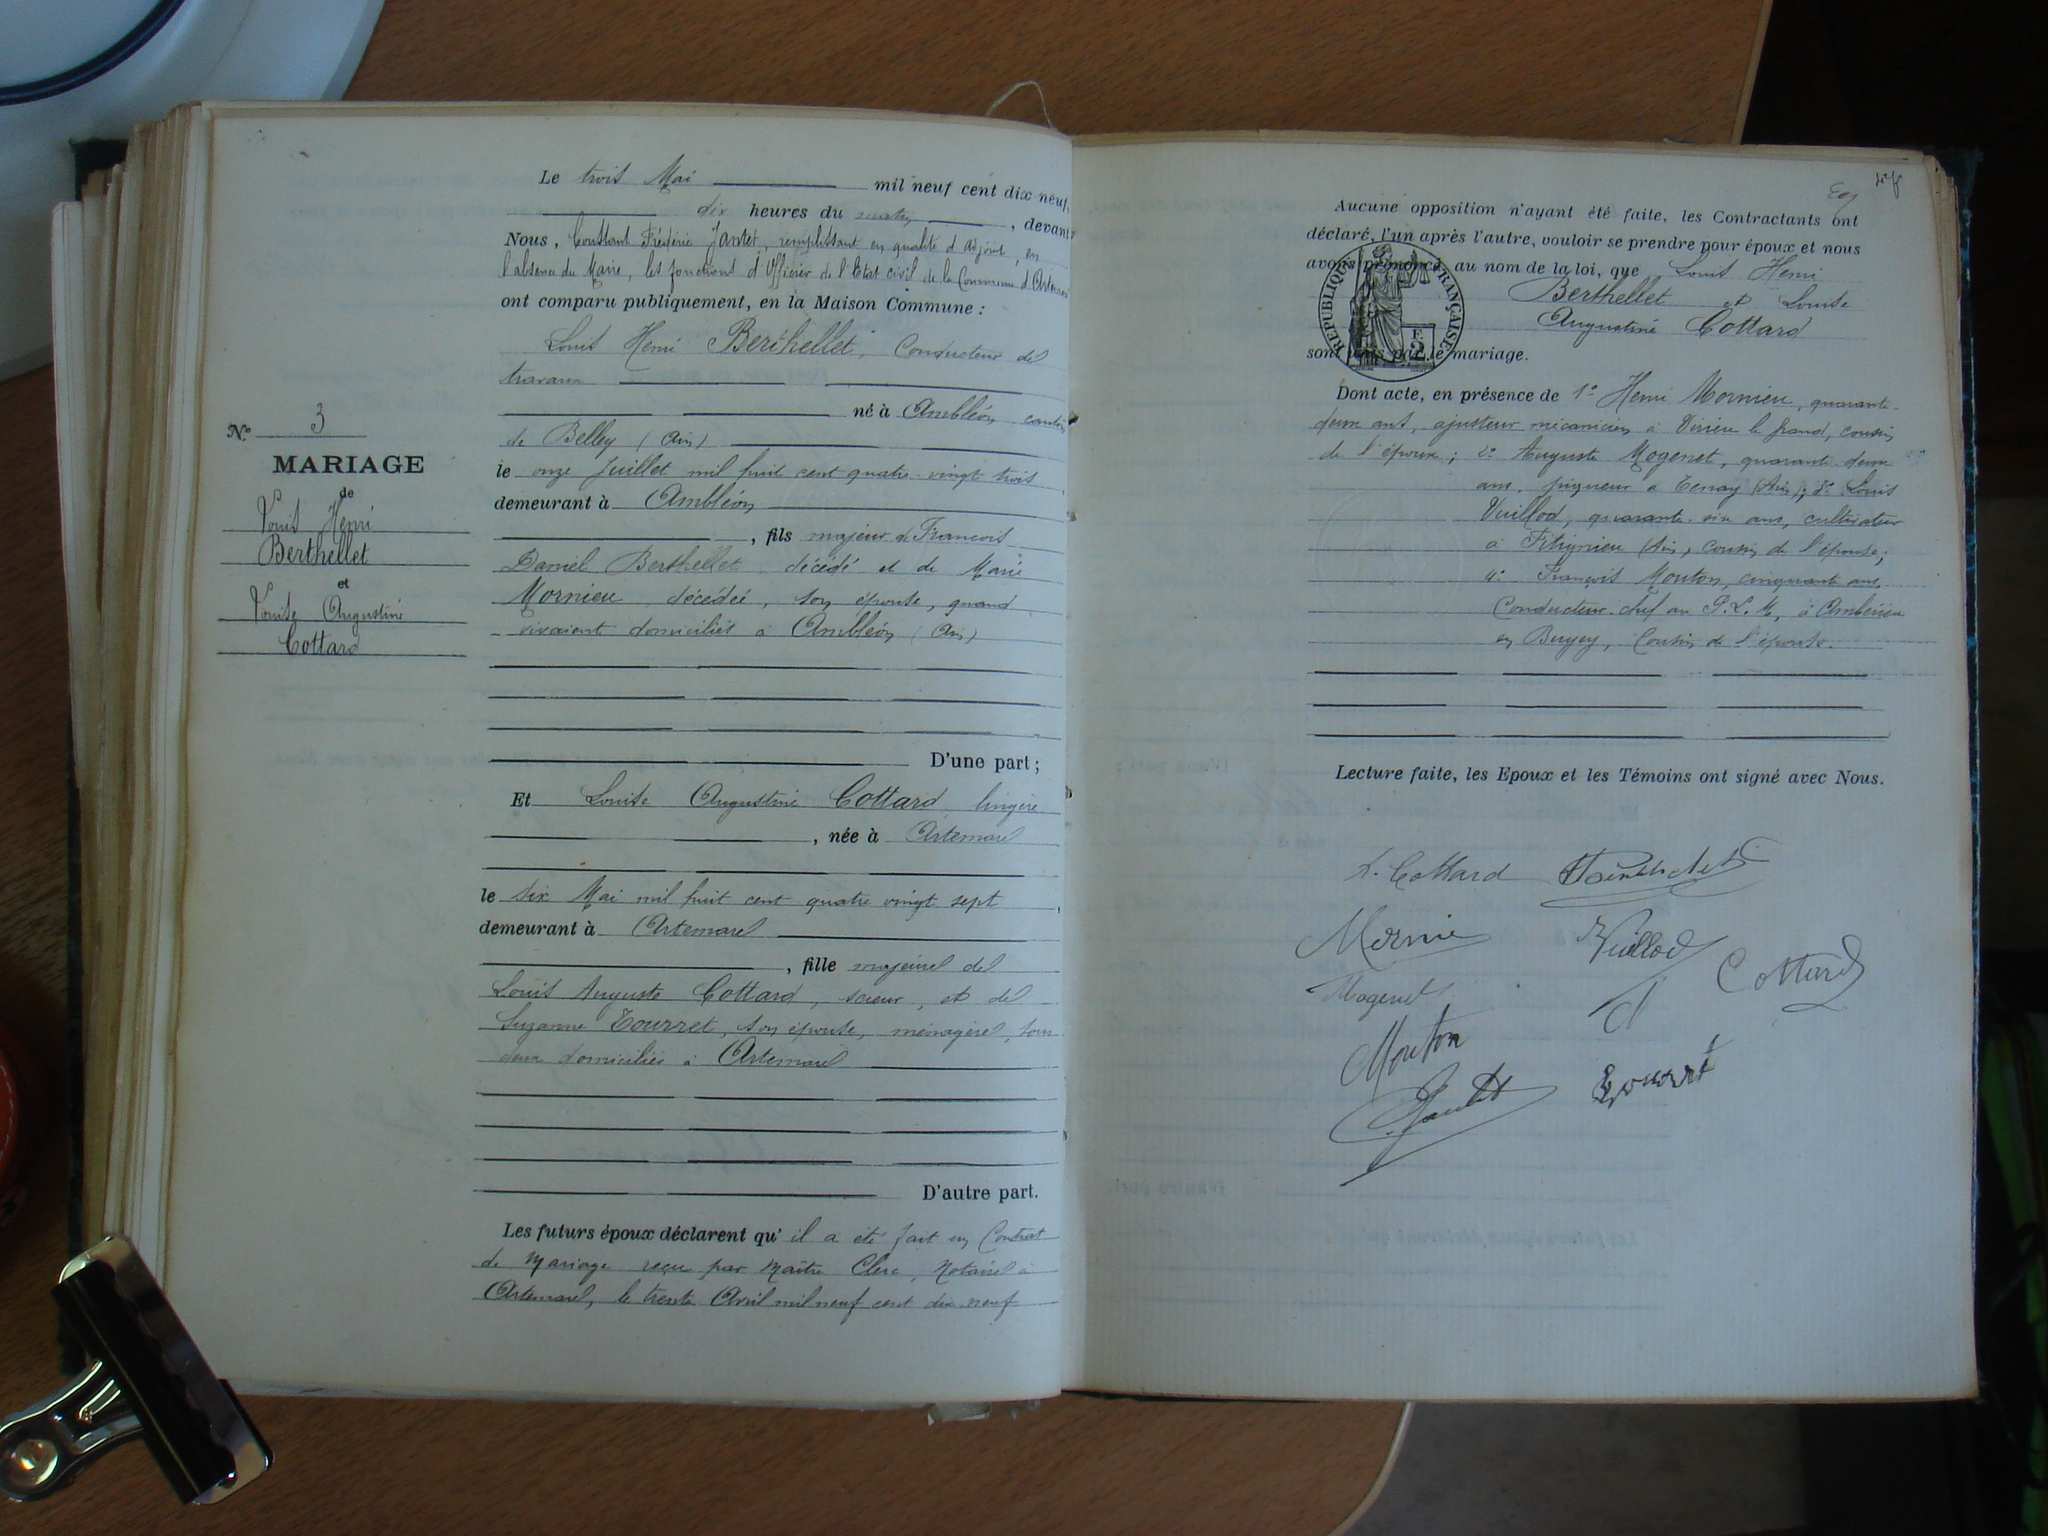 Le trois Mai mil neuf cent dix neuf,
dix heures du matin, devant
Nous, Constant Frédéric Jantet, remplissant en qualité d'adjoint, en
l'absence du Maire, les fonctions d'Officier de l'Etat civil de la Commune d'Artemare
ont comparu publiquement, en la Maison Commune :
Louis Henri Berthellet, Conducteur de
travaux
né à Ambléon, canton
de Belley (Ain)
le onze Juillet mil huit cent quatre-vingt trois
demeurant à Ambléon
, fils majeur de François
Daniel Berthellet décédé et de Marie
Mornieu décédée, son épouse, quand
vivaient domiciliés à Ambléon (Ain)
D'une part ;
N° 3
MARIAGE
de
Louis Henri
Berthellet
et
Louise Augustine
Cottard
Et Louise Augustine Cottard lingère
, née à Artemare
le six Mai mil huit cent quatre vingt sept
demeurant à Artemare
, fille majeure de
Louis Auguste Cottard, scieur, et de
Suzanne Tourret, son épouse, ménagère, tous
deux domiciliés à Artemare
D'autre part.
Les futurs époux déclarent qu'il a été fait un Contrat
de Mariage reçu par Maître Clerc, Notaire à
Artemare, le trente Avril mil neuf cent dix neuf
Aucune opposition n'ayant été faite, les Contractants ont
déclaré, l'un après l'autre, vouloir se prendre pour époux et nous
avons prononcé, au nom de la loi, que Louis Henri
Berthellet et Louise
Augustine Cottard
sont unis par le mariage.
RÉPUBLIQUE FRANÇAISE
F.
2
Dont acte, en présence de 1° Henri Mornieu, quarante-
deux ans, ajusteur mécanicien à Virieu le Grand, cousin
de l'époux ; 2° Auguste Mogenet, quarante deux
ans, piqueur à Tenay (Ain) ; 3° Louis
Vuillod, quarante-six ans, cultivateur
à Fitignieu (Ain), cousin de l'épouse ;
4° François Mouton, cinquante ans,
Conducteur-chef au P.L.M, à Ambérieu
en Bugey, Cousin de l'épouse.
Lecture faite, les Epoux et les Témoins ont signé avec Nous.
L. Cottard
Mornieu
Vuillod
Cottard
Mogenet
Mouton
Jantet
Tourret